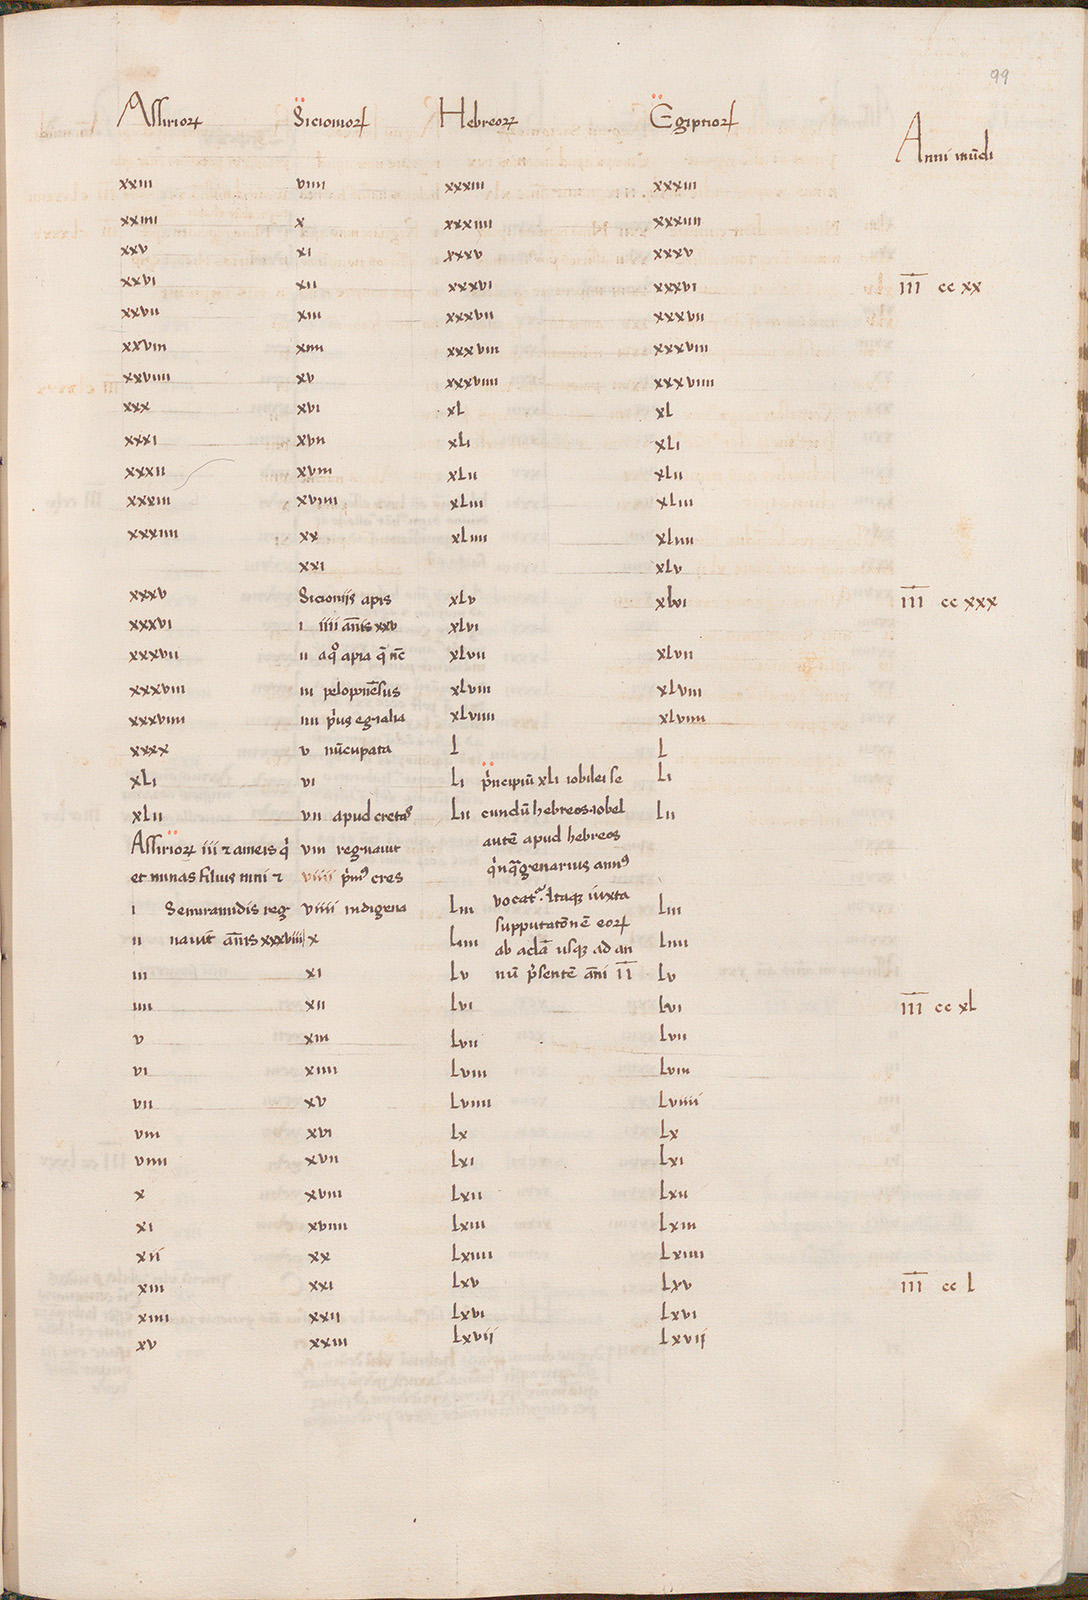 99
Assirioꝝ Sicionioꝝ Hebreoꝝ Egiptioꝝ Anni mūdi
xxiii viiii xxxiii xxxiii
xxiiii x xxxiiii xxxiiii
xxv xi xxxv xxxv
xxvi xii xxxvi xxxvi III̅ cc xx
xxvii xiii xxxvii xxxvii
xxviii xiiii xxxviii xxxviii
xxviiii xv xxxviiii xxxviiii
xxx xvi xL xL
xxxi xvii xLi xLi
xxxii xviii xLii xLii
xxxiii xviiii xLiii xLiii
xxxiiii xx xLiiii xLiiii
xxi xLv
xxxv Sicioniis apis xLv xLvi III̅ cc xxx
xxxvi i iiii an̄is xxv xLvi
xxxvii ii a qͦ apia q̄ nc̄ xLvii xLvii
xxxviii iii pelopon̄esus xLviii xLviii
xxxviiii iiii pⁱus egialia xLviiii xLviiii
xxxx v nūcupata L L
xLi vi Li pⁱncipiū xLi iobilei se Li
xLii vii apud cretaꝰ Lii cundū hebreos. iobel Lii
Assirioꝝ iii ⁊ ameis qⁱ viii regnauit autē apud hebreos
et ninas filius nini ⁊ viiii pⁱmꝰ cres qⁱnqᵃgenarius annꝰ
i Semiramidis reg viiii indigena Liii vocatᵒ. Itaqꝫ iuxta Liii
ii nauit an̄is xxxviii x Liiii supputatōnē eoꝝ Liiii
ab adā usqꝫ ad an
iii xi Lv nū pⁱsentē an̄i II̅ Lv
iiii xii Lvi Lvi III̅ cc xL
v xiii Lvii Lvii
vi xiiii Lviii Lviii
vii xv Lviiii Lviiii
viii xvi Lx Lx
viiii xvii Lxi Lxi
x xviii Lxii Lxii
xi xviiii Lxiii Lxiii
xii xx Lxiiii Lxiiii
xiii xxi Lxv Lxv III̅ cc l
xiiii xxii Lxvi Lxvi
xv xxiii Lxvii Lxvii